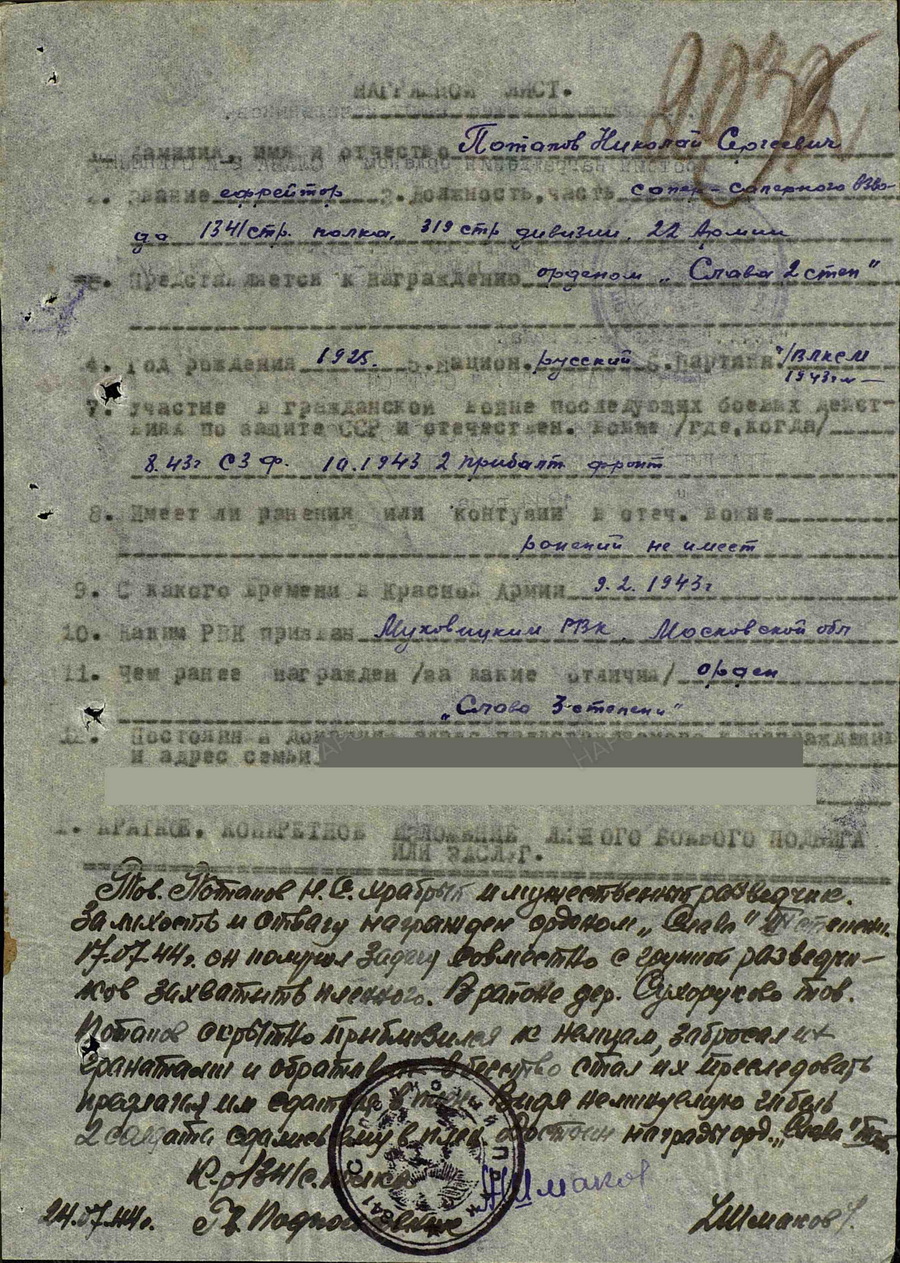 НАГРАДНОЙ ЛИСТ.
1. Фамилия, имя и отчество Потапов Николай Сергеевич
2. Звание ефрейтор 3. Должность, часть сапер-саперного взво-
да 1341 стр. полка, 319 стр дивизии, 22 Армии
Представляется к награждению орденом „Слава 2 степ"
4. Год рождения 1925. 5. Национ. русский 6. Партийн. ч/ВЛКСМ
1943г
7. Участие в гражданской войне последующих боевых дейст-
виях по защите СССР и отечествен. войне /где, когда/
8.43г СЗ Ф. 10.1943 2 прибалт фронт
8. Имеет ли ранения или контузии в отеч. войне
ранений не имеет
9. С какого времени в Красной Армии 9.2.1943г
10. Каким РВК призван Луховицким РВК, Московской обл
11. Чем ранее награжден /за какие отличия/ орден
„Слава 3 степени"
12. Постоян й домашний адрес представляемого к награждению
и адрес семьи
1. КРАТКОЕ, КОНКРЕТНОЕ ИЗЛОЖЕНИЕ ЛИЧНОГО БОЕВОГО ПОДВИГА
ИЛИ ЗАСЛУГ.
Тов. Потапов Н.С. храбрый и мужественный разведчик.
За лихость и отвагу награжден орденом „Слава" III степени.
17.07.44г. он получил задачу совместно с группой разведчи-
ков захватить пленного. В районе дер. Сухоруково тов.
Потапов скрытно приблизился к немцам, забросал их
гранатами и обратив их в бегство стал их преследовать
предлагая им сдаться в плен. Видя неминуемую гибель
2 солдата сдались ему в плен. Достоин награды орд. „Слава"
К-р 1341 с. полка
24.07.44г. Гв. Подполковник Шмаков